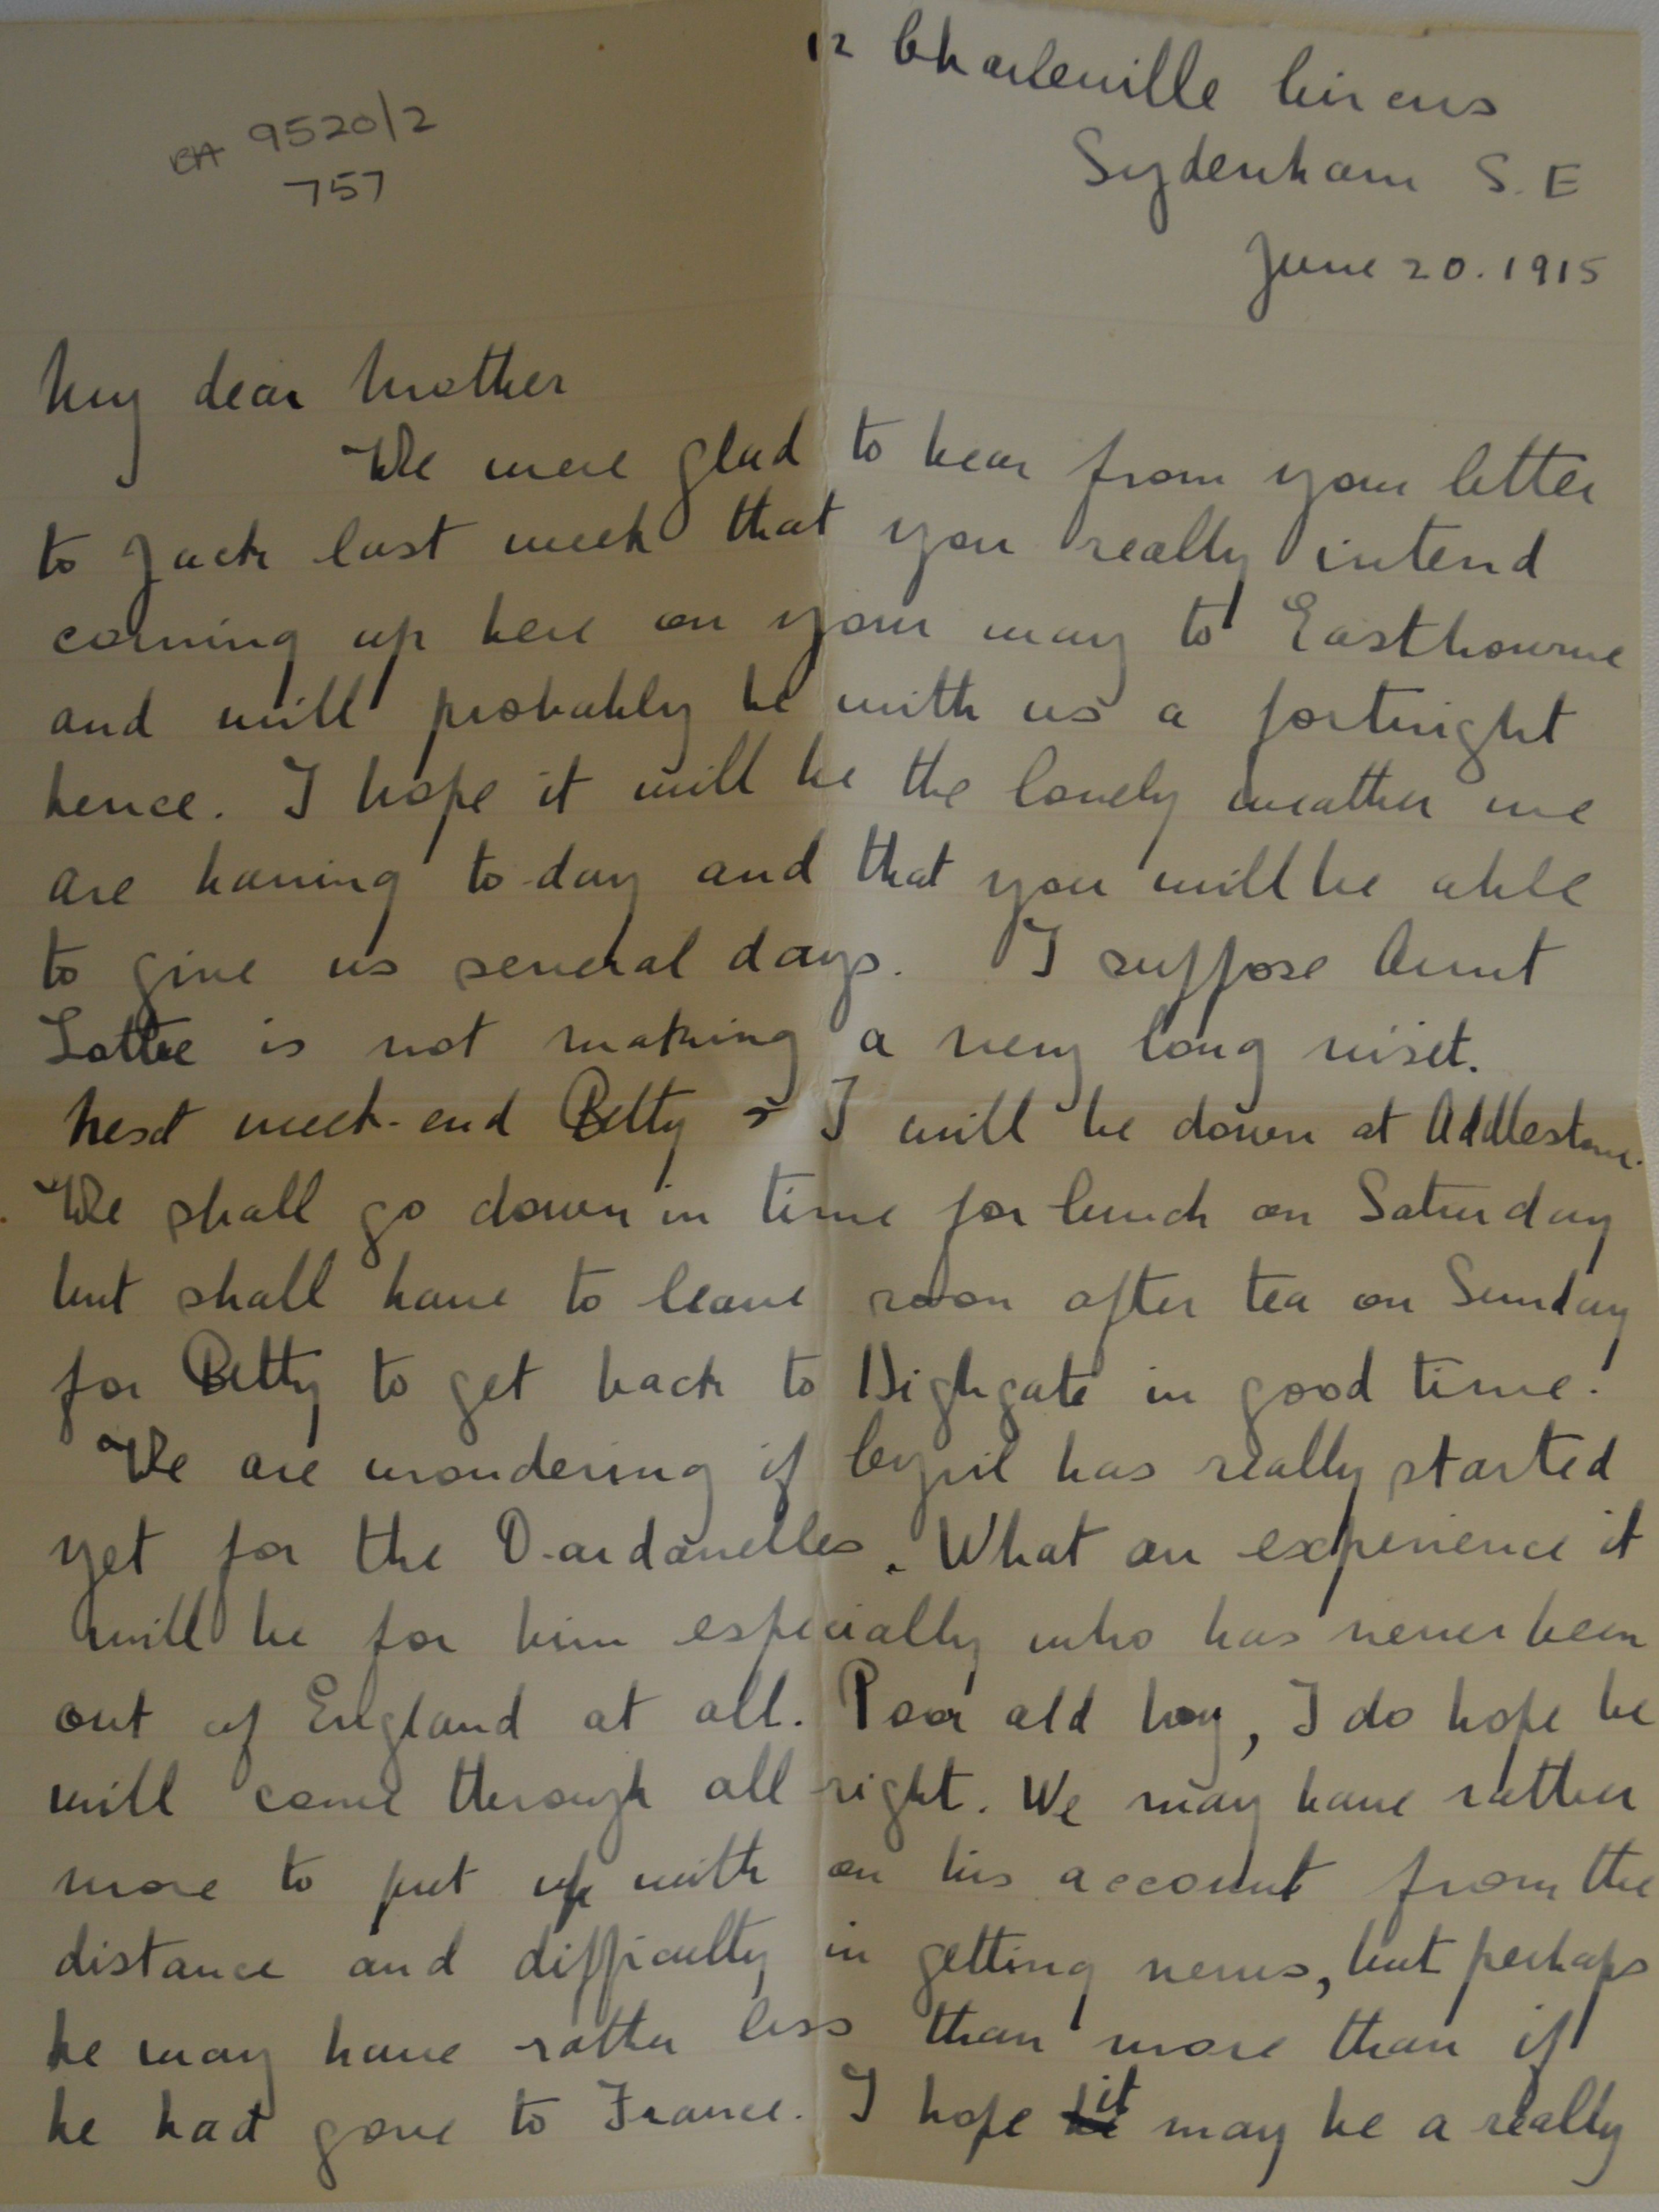 12 Charleville Circus
Sydenham S.E
June 20. 1915
BA 9520/2
757
My dear Mother
We were glad to hear from your letter
to Jack last week that you really intend
coming up here on your way to Eastbourne
and will probably be with us a fortnight
hence. I hope it will be the lovely weather we
are having to-day and that you will be able
to give us several days. I suppose Aunt
Lottie is not making a very long visit.
Next week-end Betty & I will be down at Addlestone.
We shall go down in time for lunch on Saturday
but shall have to leave soon after tea on Sunday
for Betty to get back to Highgate in good time.
We are wondering if Cyril has really started
yet for the Dardanelles. What an experience it
will be for him especially who has never been
out of England at all. Poor old boy, I do hope he
will come through all right. We may have rather
more to put up with on his account from the
distance and difficulty in getting news, but perhaps
he may have rather less than more than if
he had gone to France. I hope it may be a really